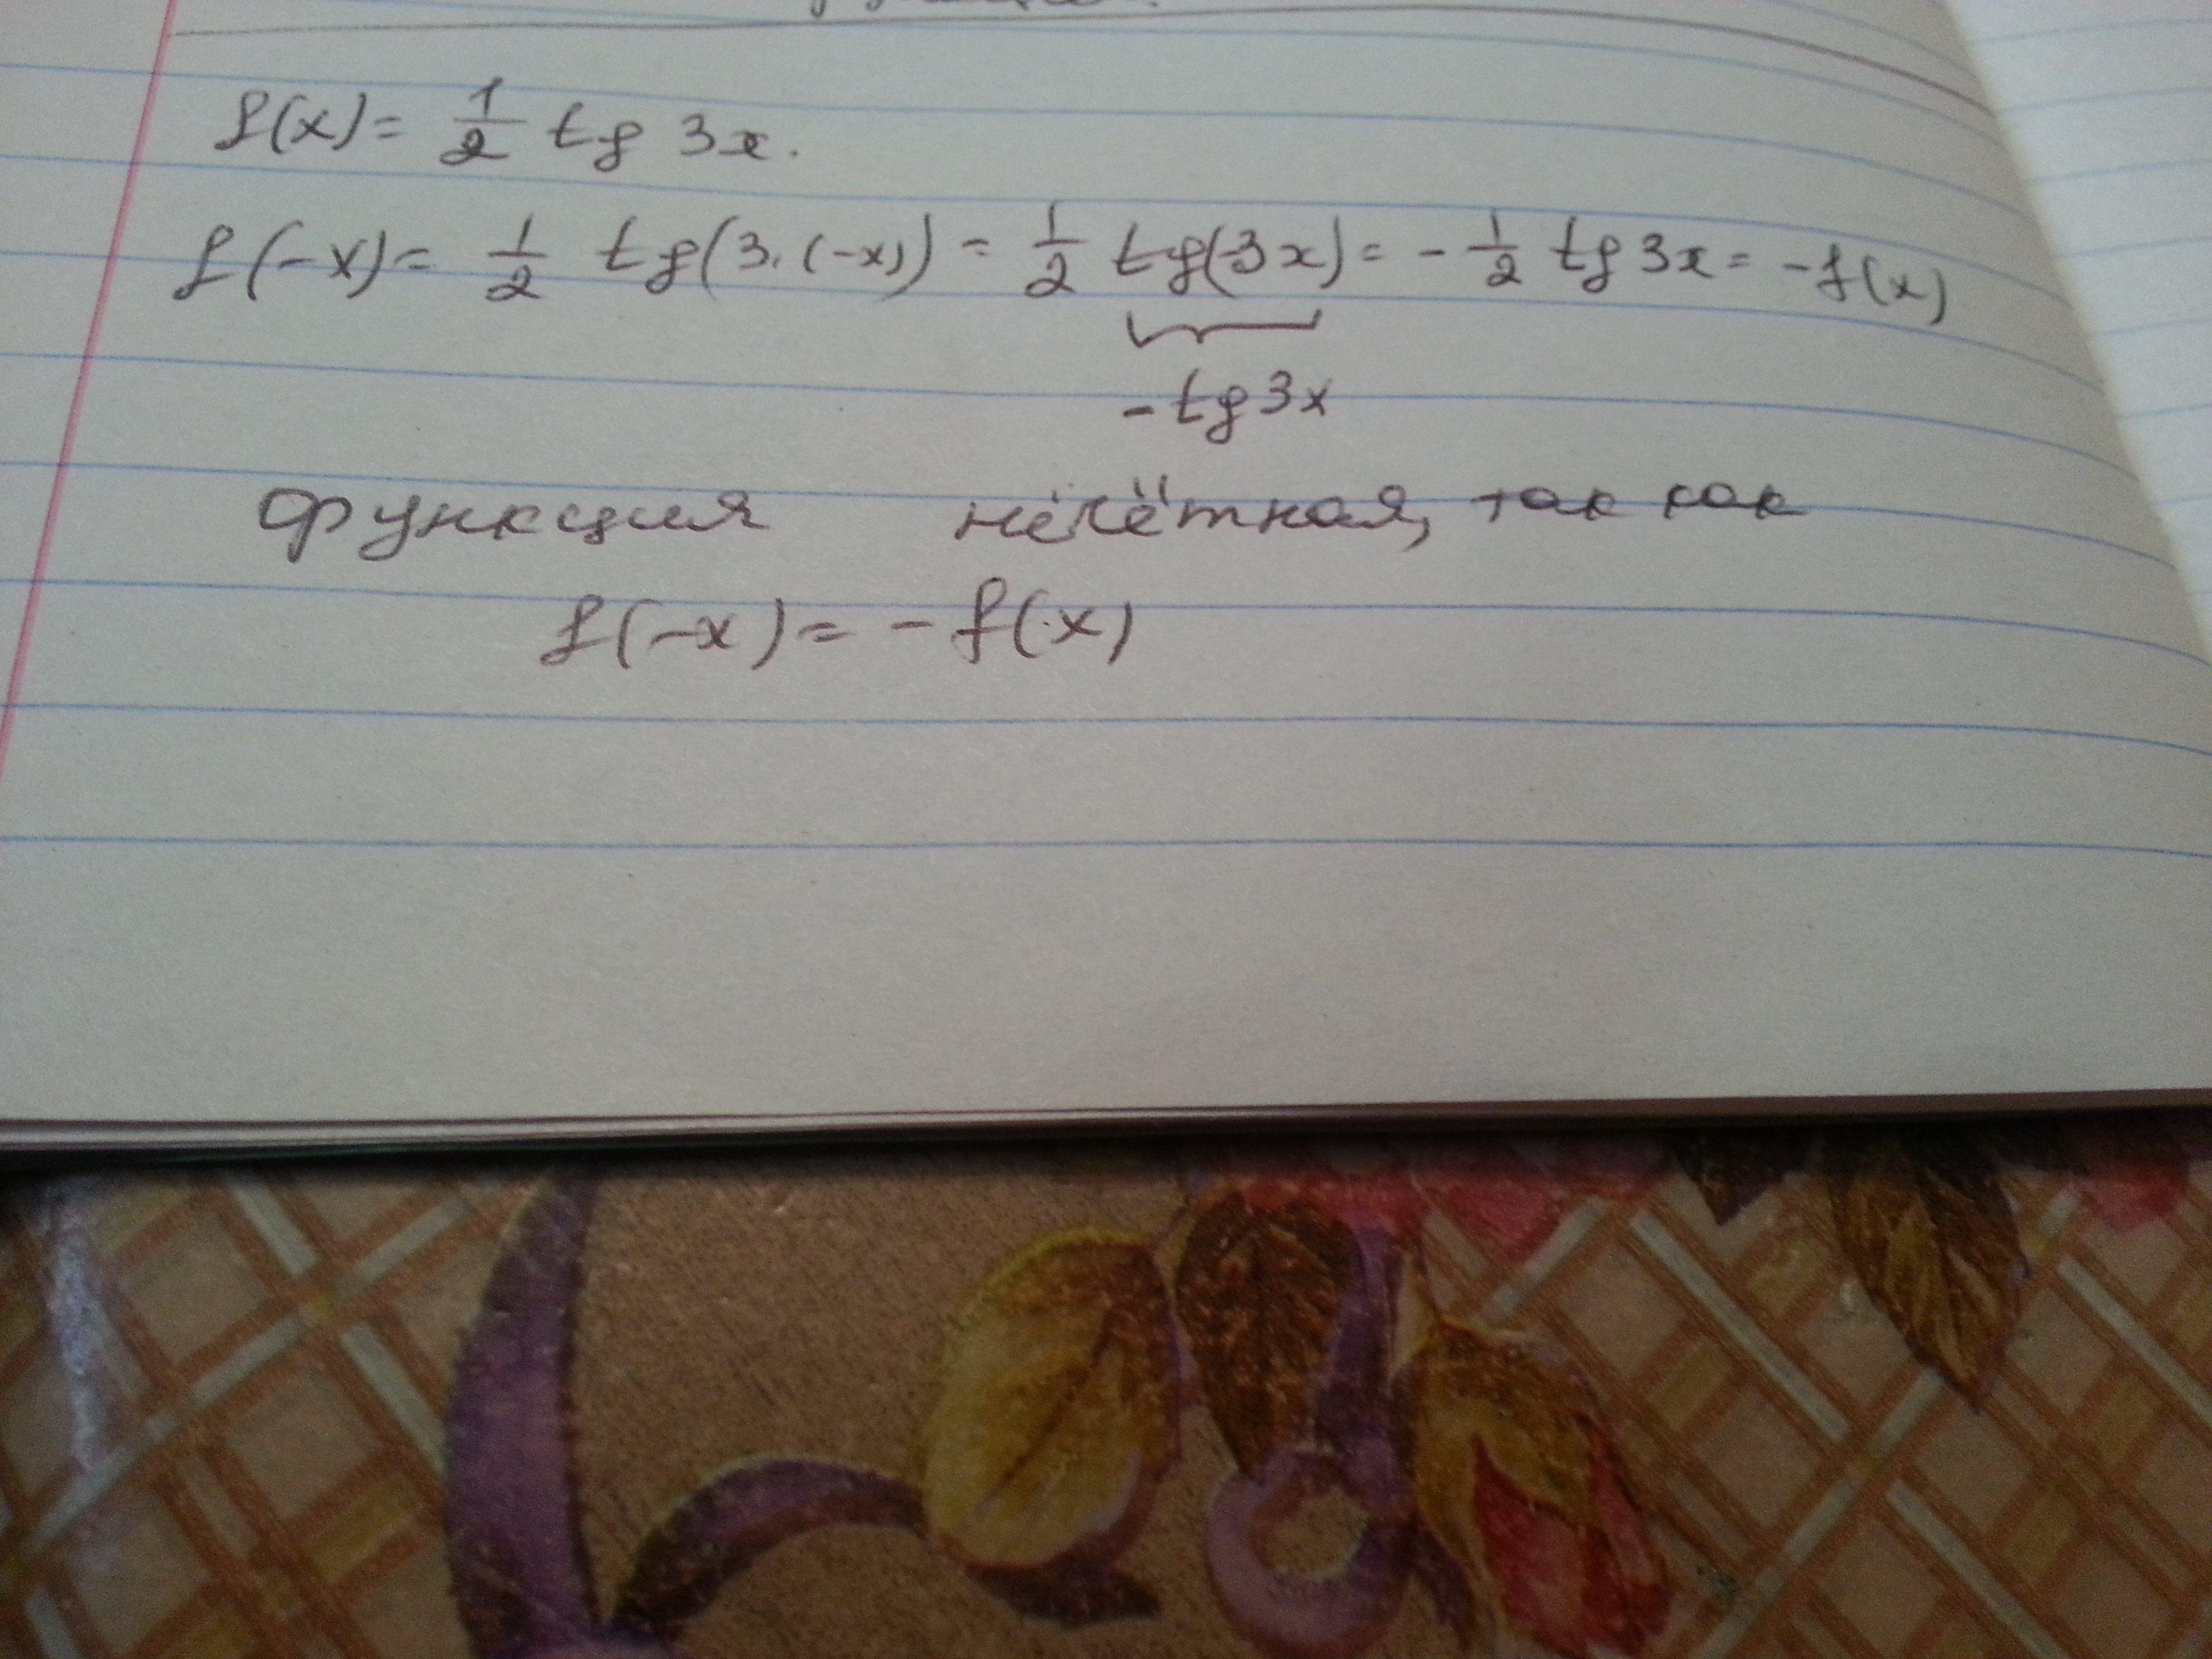 f(x) = 1/2 tg 3x.
f(-x) = 1/2 tg(3·(-x)) = 1/2 tg(-3x) = - 1/2 tg 3x = -f(x)
- tg 3x
функция нечётная, так как
f(-x) = - f(x)